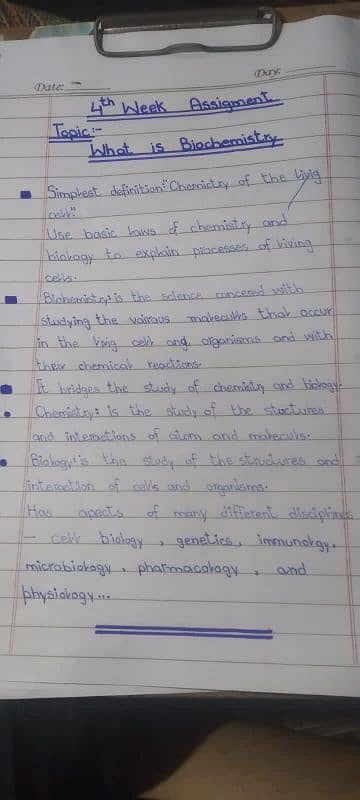 Date:
Day:
4th Week Assigment
Topic:-
What is Biochemistry
Simplest definition:"Chemictry of the livig
cell."
Use basic laws of chemistry and
biology to explain processes of living
cells.
Biohemistry: is the science concered with
studying the vairous molecules that occur
in the livig cell and organisms and with
their chemical reactions.
It bridges the study of chemistry and biology.
Chemistry: is the study of the stuctures
and interactions of atom and moleculs.
Biology: is the study of the structures and
interaction of cells and organisms.
Has apects of many different disciplines
- cell biology, genetics, immunolgy,
microbiology, pharmacology, and
physiology...